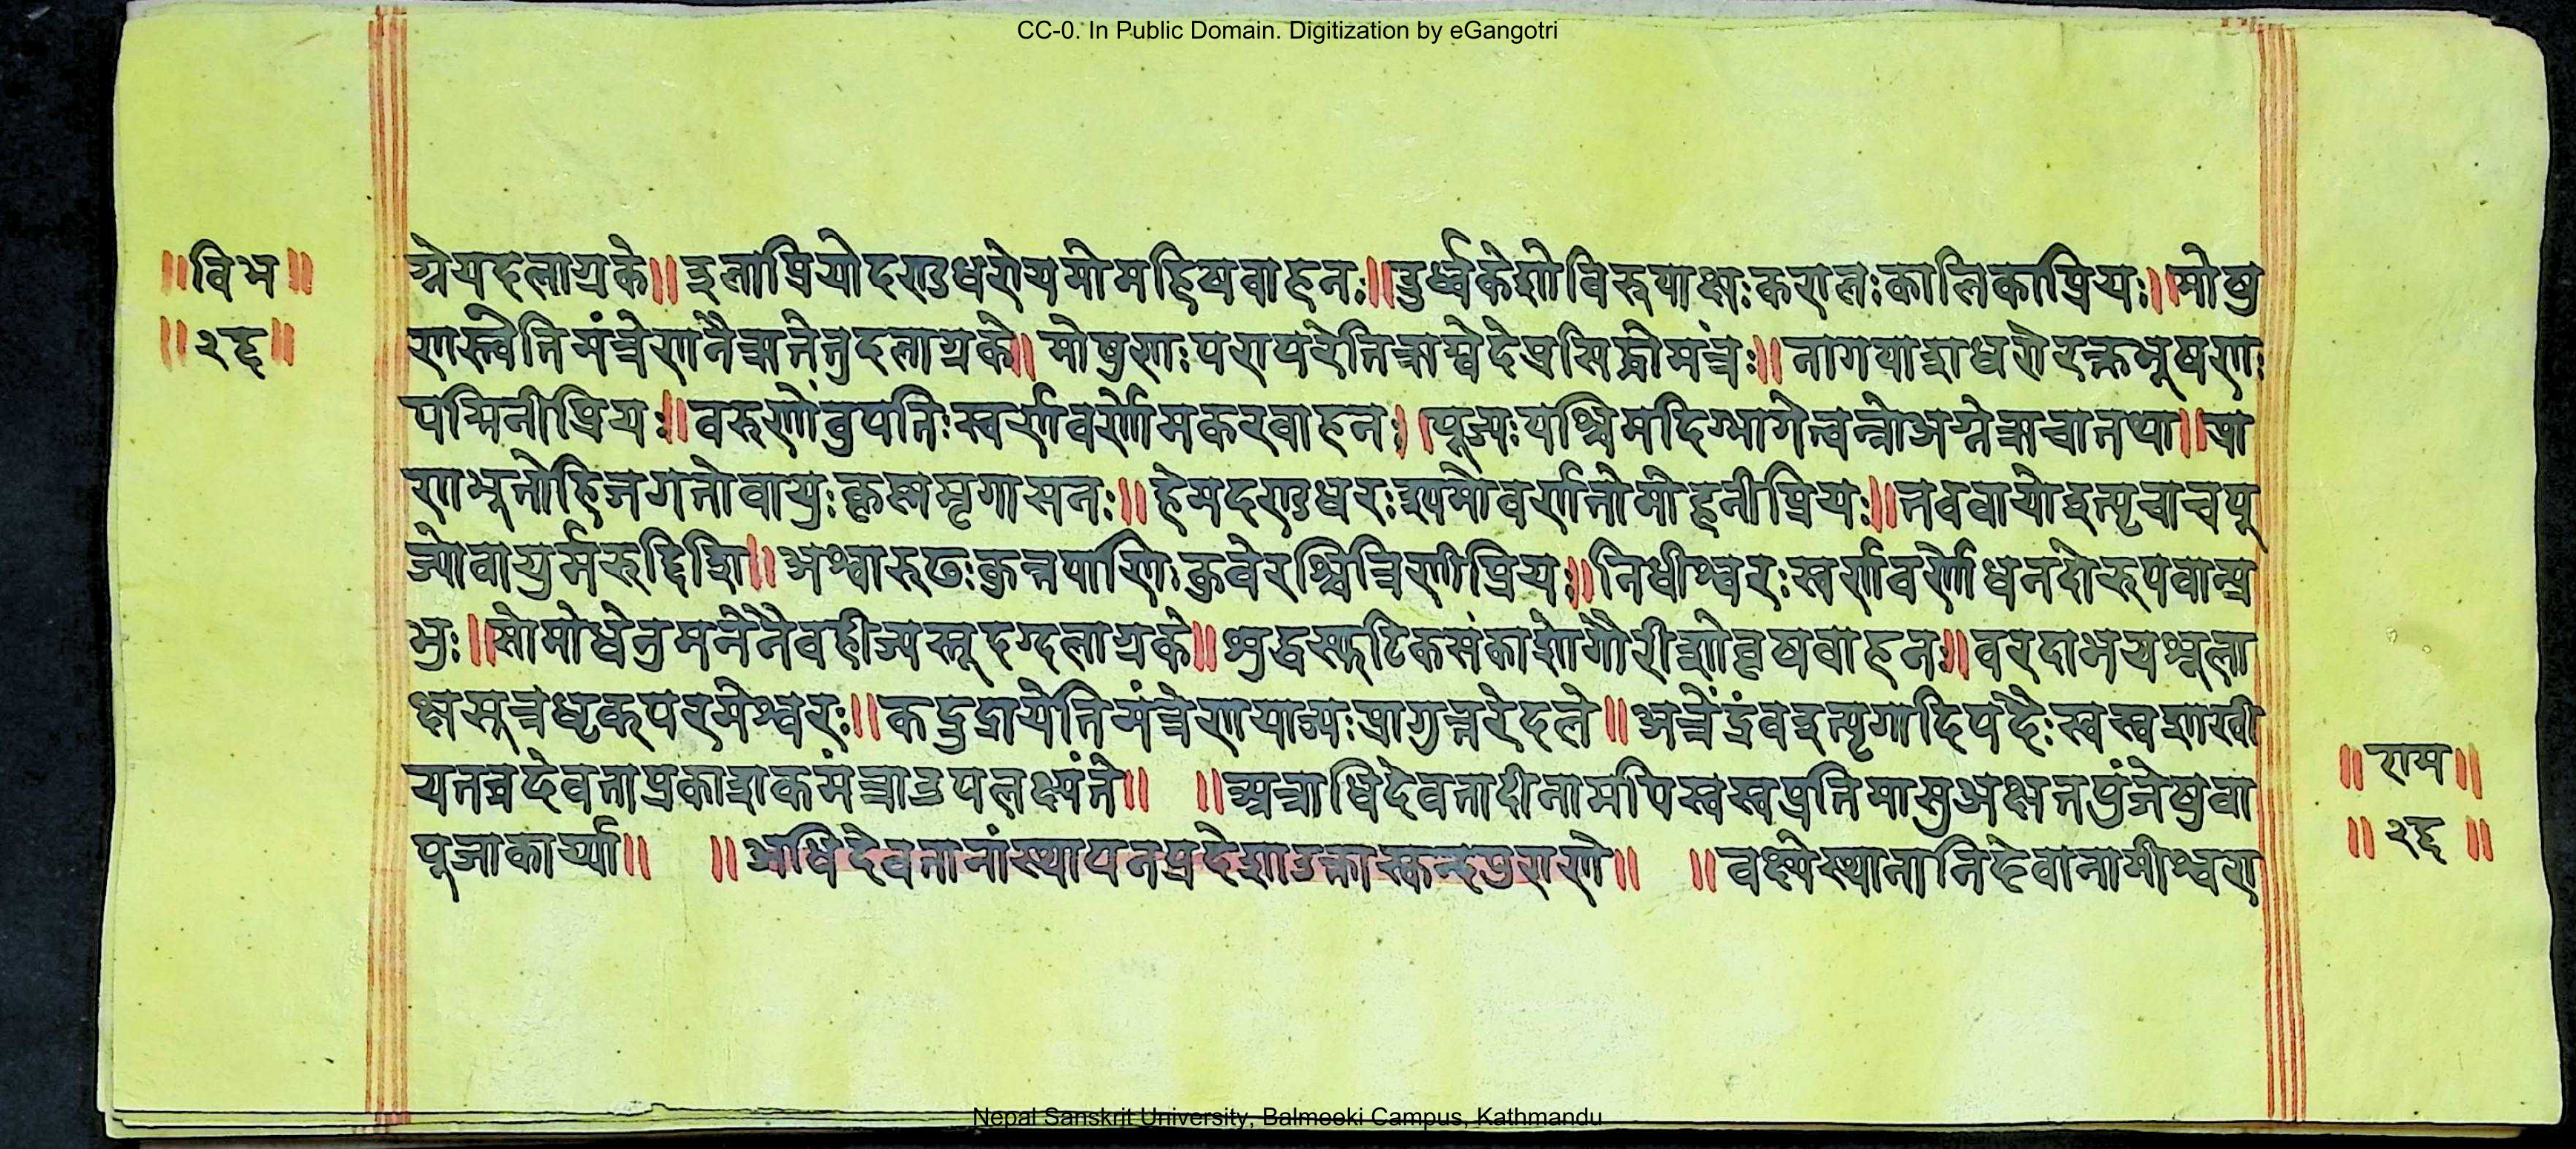 CC-0. In Public Domain. Digitization by eGangotri
॥विभ॥
॥२६॥
ग्नेयदलाग्रके॥इलाप्रियोदण्डधरोयमोमहिषवाहनः॥ऊर्ध्वकेशोविरूपाक्षःकरालःकालिकाप्रियः॥मोषु
णस्त्वेतिमंत्रेणनैऋतेतुदलाग्रके॥मोषुणःपरापरेतिऋग्वेदेप्रसिद्धोमंत्रः॥नागपाशधरोरक्तभूषणः
पद्मिनीप्रियः॥वरुणोंवुपतिःस्वर्णवर्णोमकरवाहनः॥पूज्यःपश्चिमदिग्भागेत्वन्नोअग्नेऋचातथा॥प्रा
णभूतोहिजगतोवायुःकृष्णमृगासनः॥हेमदण्डधरःश्यामोवर्णतोमोहनीप्रियः॥तववायोइत्यृचाचपू
ज्योवायुर्मरुद्दिशि॥अश्वारुढःकुन्तपाणिःकुवेरश्चित्रिणीप्रियः॥निधीश्वरःस्वर्णवर्णोधनदोरुपवान्प्र
भुः॥सोमोधेनुमनेनैवहीज्यस्तूदग्दलाग्रके॥शुद्धस्फटिकसंकाशोगौरीशोवृषवाहनः॥वरदाभयशूला
क्षसूत्रधृक्परमेश्वरः॥कद्रुद्रायेतिमंत्रेणयाज्यःप्रागुत्तरेदले॥अत्रेंद्रंवइत्यृगादिपदैःस्वस्वशाखी
यतत्तदेवताप्रकाशकमंत्राउपलक्ष्यंते॥ ॥अत्राधिदेवतादीनामपिस्वस्वप्रतिमासुअक्षतपुंजेषुवा
पूजाकार्य्या॥ ॥अधिदेवतानांस्थापनप्रदेशाउक्तास्कन्दपुराणे॥ ॥वक्ष्येस्थानानिदेवानामीश्वरा
॥राम॥
॥२६॥
Nepal Sanskrit University, Balmeeki Campus, Kathmandu